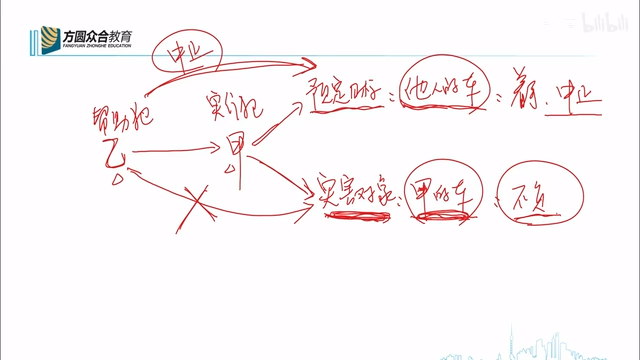 方圆众合教育
FANGYUAN ZHONGHE EDUCATION
bilibili
中止
帮助犯
实行犯
乙
甲
预定目标：他人的车：着手、中止
实害对象：甲的车：不负